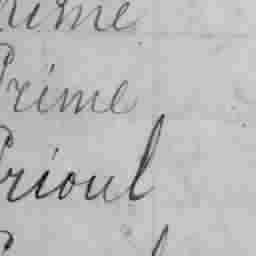 Prime
Prime
Prioul